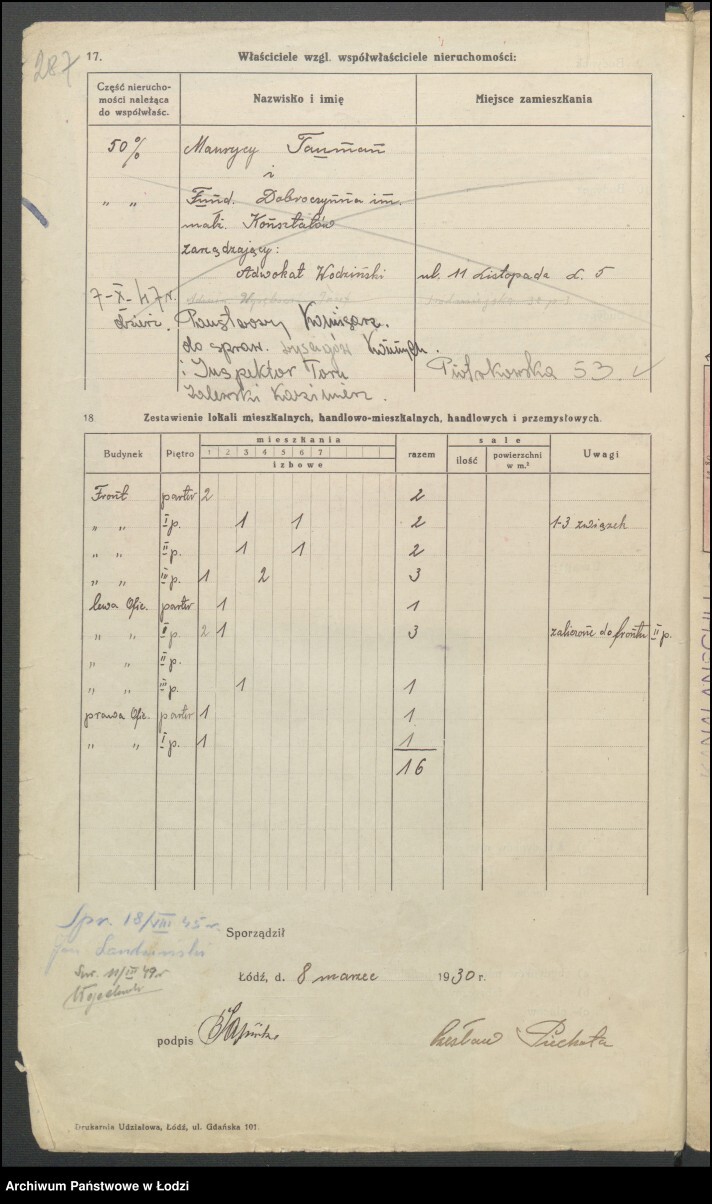 287
17. Właściciele wzgl. współwłaściciele nieruchomości:
Część nierucho-
mości należąca
do współwłaśc.
Nazwisko i imię
Miejsce zamieszkania
50% Maurycy Tauman
i
„ „ Fund. Dobroczynna im.
małż. Konsztatów
zarządzający:
Adwokat Wodziński ul. 11 Listopada d. 5
7-X-47 r.
Państwowy Komisarz
do spraw. wyścigów Konnych.
i Inspektor Toru Piotrkowska 53.
Zalewski Kazimierz.
18. Zestawienie lokali mieszkalnych, handlowo-mieszkalnych, handlowych i przemysłowych.
Budynek Piętro mieszkania razem sale Uwagi
1 2 3 4 5 6 7
izbowe
ilość powierzchni
w m.²
Front parter 2 2
„ „ I p. 1 1 2 1-3 związek
„ „ II p. 1 1 2
„ „ III p. 1 2 3
lewa Ofic. parter 1 1
„ „ I p. 2 1 3 zaliczone do frontu II p.
„ „ II p.
„ „ III p. 1 1
prawa Ofic. parter 1 1
„ „ I p. 1 1
16
Spr. 18/VIII 45 r.
Jan
Sporządził
Spr. 11/IX 49 r
Łódź, d. 8 marzec 1930 r.
podpis
Czesław Piechota
Drukarnia Udziałowa, Łódź, ul. Gdańska 101.
Archiwum Państwowe w Łodzi